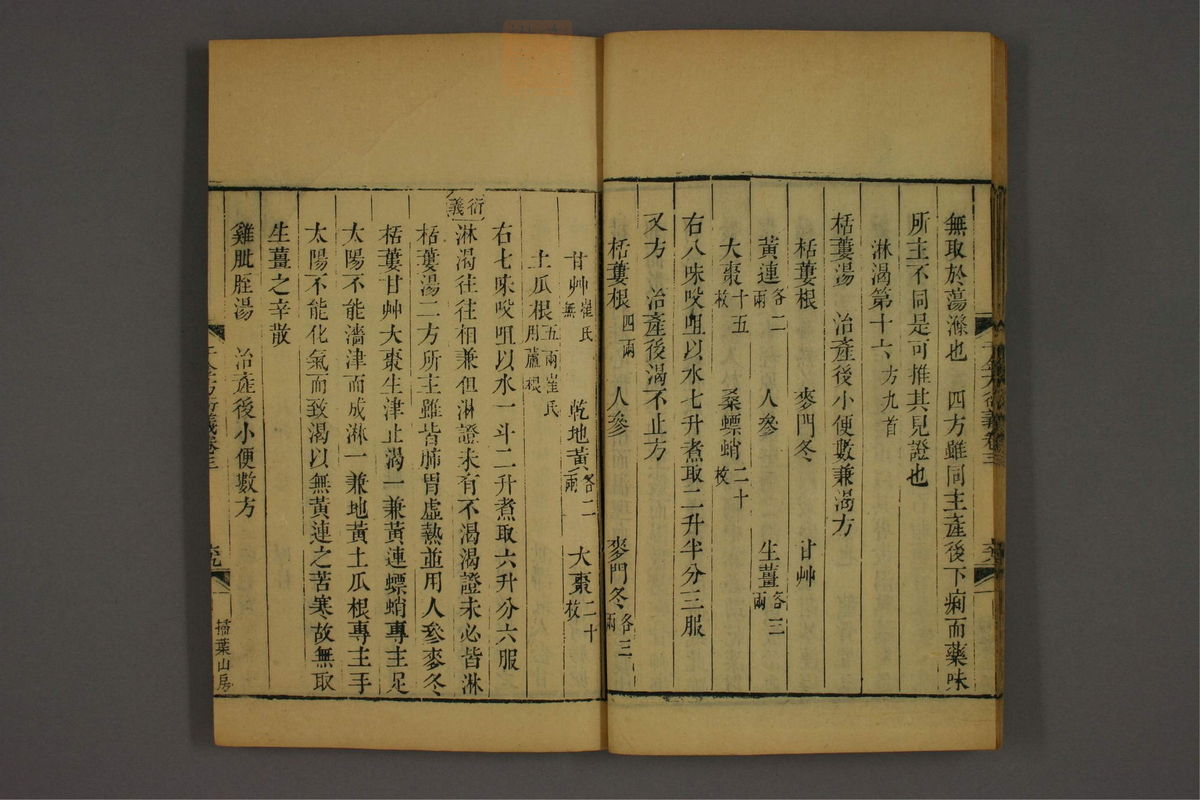 無取於蕩滌也　四方雖同主產後下痢而藥味
所主不同是可推其見證也
淋渴第十六方九首
栝蔞湯　治產後小便數兼渴方
栝蔞根　麥門冬　甘艸
黃連各二兩　人參　生薑各三兩
大棗十五枚　桑螵蛸二十枚
右八味㕮咀以水七升煮取二升半分三服
又方　治產後渴不止方
栝蔞根四兩　人參　麥門冬各三兩
甘艸崔氏無　乾地黃各二兩　大棗二十枚
土瓜根五兩崔氏用蘆根
右七味㕮咀以水一斗二升煮取六升分六服
衍義　淋渴往往相兼但淋證未有不渴渴證未必皆淋
栝蔞湯二方所主雖皆肺胃虛熱並用人參麥冬
栝蔞甘艸大棗生津止渴一兼黃連螵蛸專主足
太陽不能濇津而成淋一兼地黃土瓜根專主手
太陽不能化氣而致渴以無黃連之苦寒故無取
生薑之辛散
雞肶胵湯　治產後小便數方
千金方衍義卷三
掃葉山房